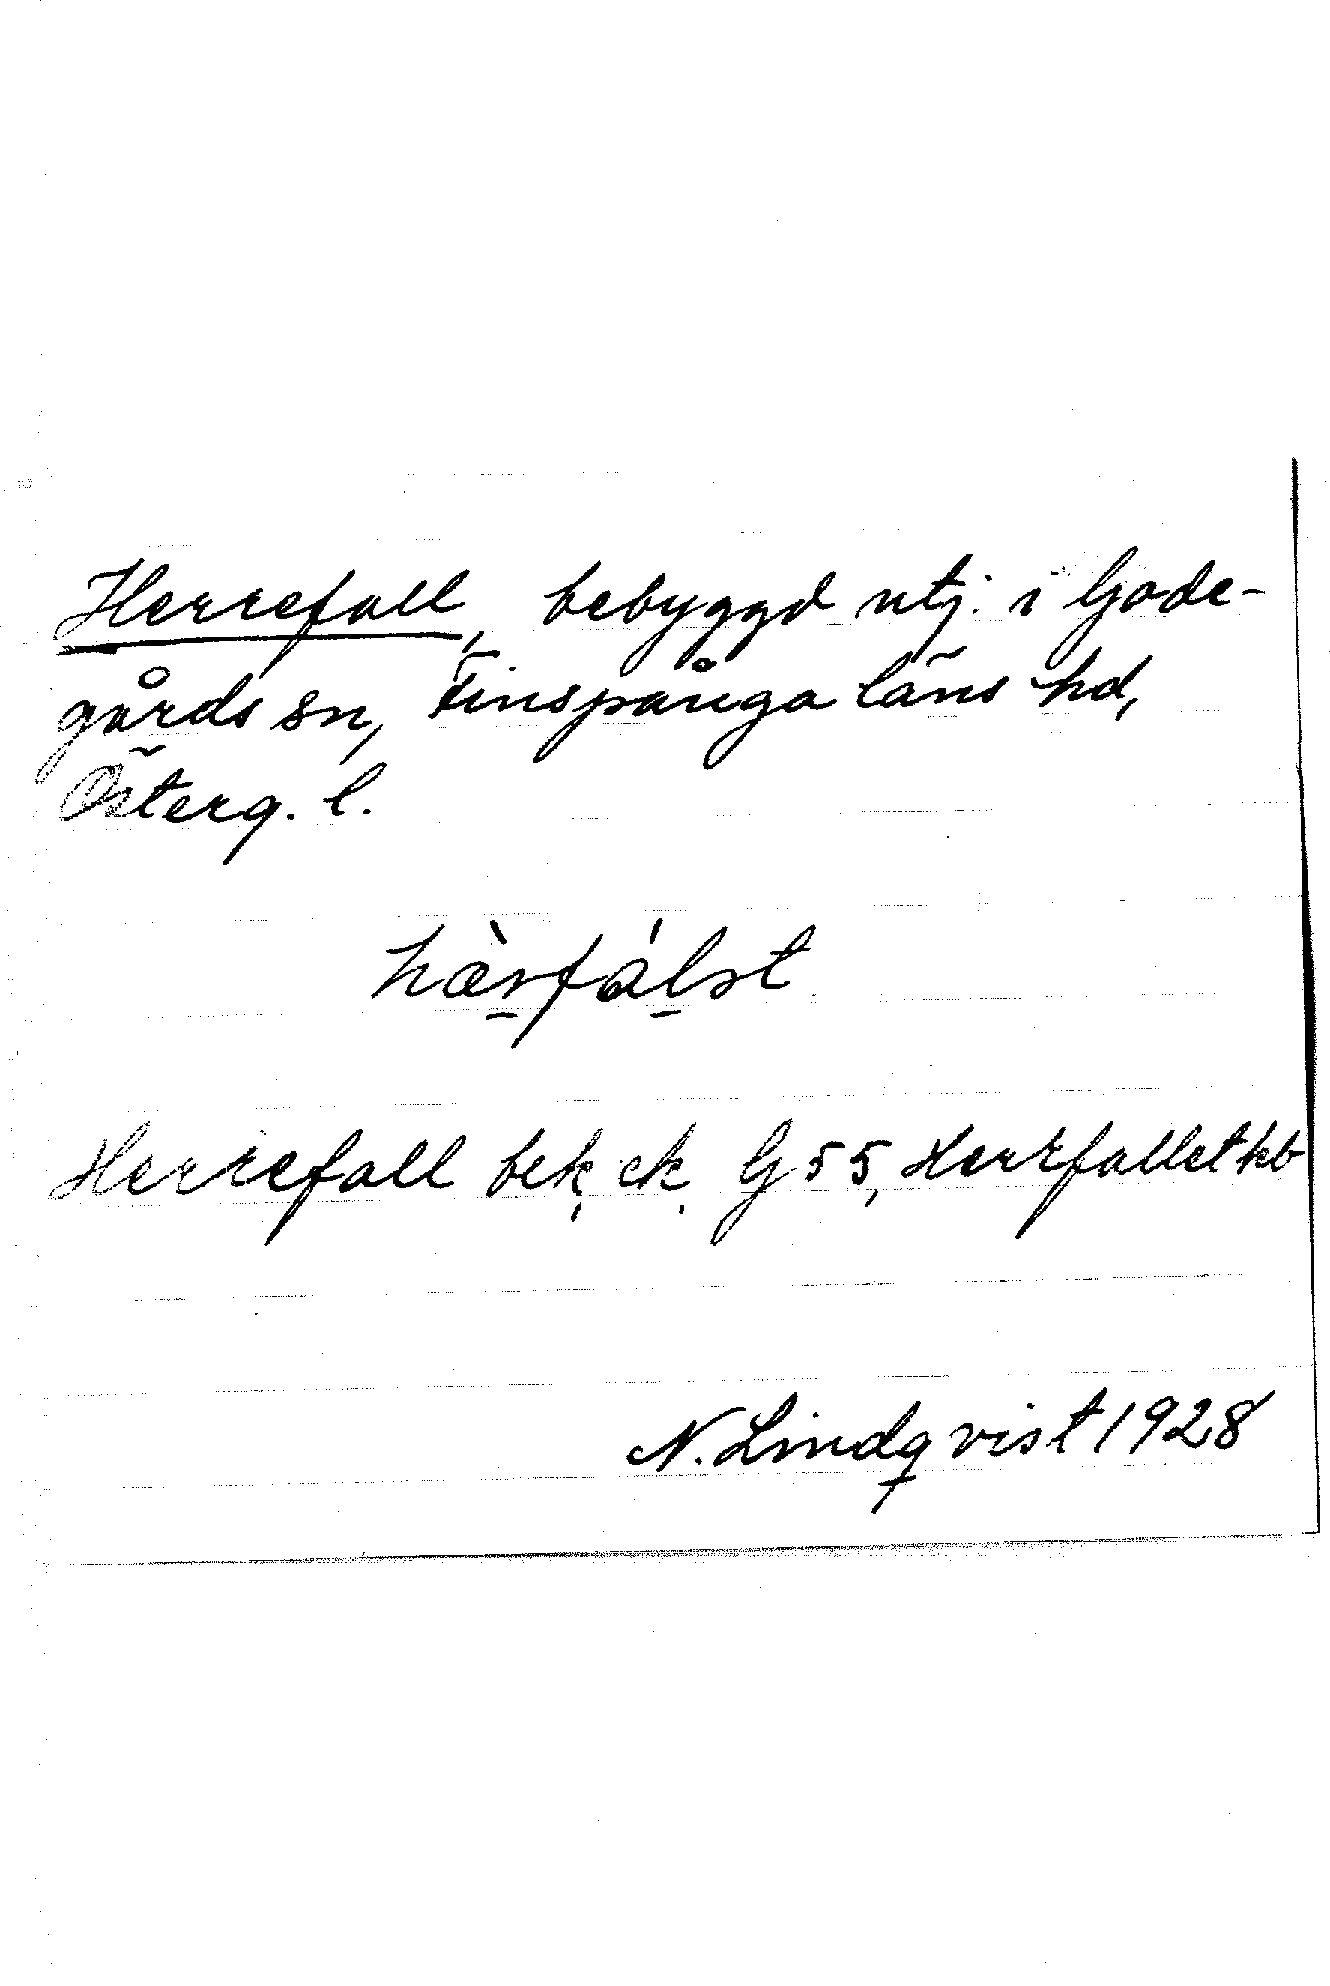 Herrefall, bebyggd utj. i Gode-
gårds sn, Finspånga läns hd,
Österg. l.
hær̲fál̲st
Herrefall bek, ek, G 55, Herrfallet kb
N. Lindqvist 1928